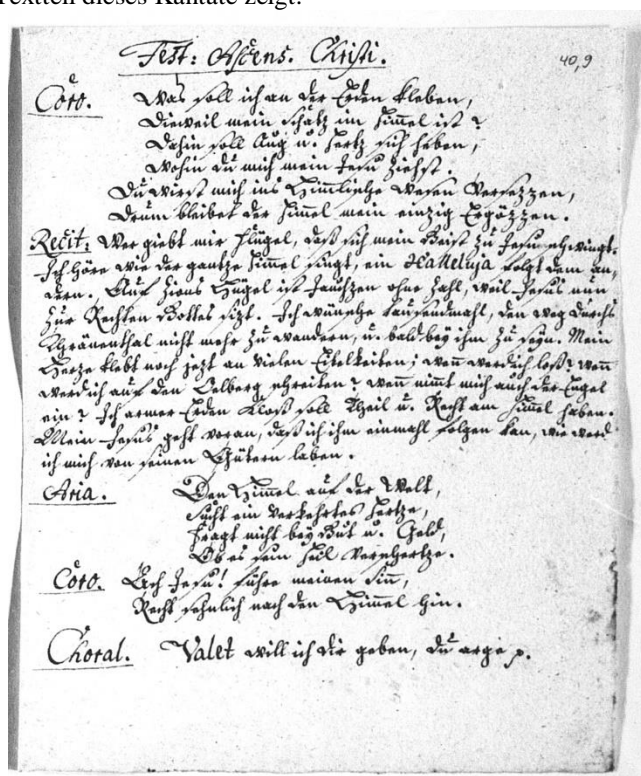 Textteil dieses Kantate zeigt:
Fest: Ascens. Christi.
40,9
Coro. Was soll ich an der Erden kleben,
Dieweil mein Schatz im Himel ist?
Dahin soll Aug u. Hertz sich heben,
Wohin du mich mein Jesu ziehst.
Du wirst mich ins Himlische Wesen versezzen,
Drum bleibet der Himel mein einzig Ergözzen.
Recit: Wer giebt mir Flügel, daß sich mein Geist zu Jesu schwingt.
Ich höre wie der gantze Himel singt, ein Halleluja folgt dem an-
dern. Auf Zions Hügel ist Jauchzen ohne Zahl, weil Jesus nun
zur Rechten Gottes sizt. Ich wünsche tausendmahl, den Weg durchs
Thränenthal nicht mehr zu wandern, u. bald bey ihm zu seyn. Mein
Herze klebt noch jezt an vielen Eitelkeiten; wen werd ich loß? wen
werd ich auf den Oelberg schreiten? wen nimt mich auch der Engel
ein? Ich armer Erden Kloß soll Theil u. Recht am Himel haben.
Mein Jesus geht voran, daß ich ihm einmahl folgen kan, wie werd
ich mich von seinen Gütern laben.
Aria. Den Himel auf der Welt,
Sucht ein verkehrtes Hertze,
Fragt nicht bey Gut u. Geld,
Ob es sein Heil verschertze.
Coro. Ach Jesu! führe meinen Sinn,
Recht sehnlich nach den Himel hin.
Choral. Valet will ich dir geben, du arge p.